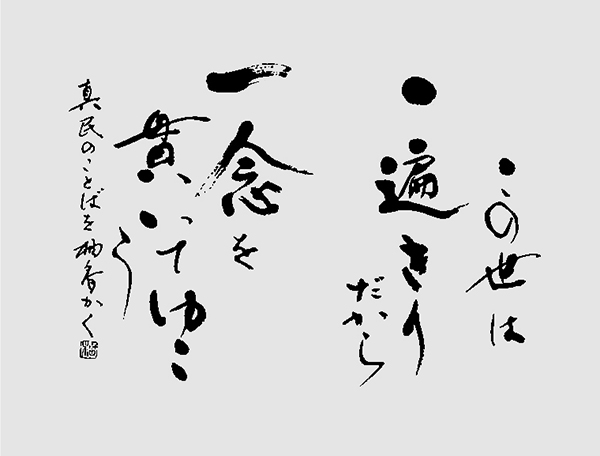 この世は
一遍きり
だから
一念を
貫いてゆこ
う
真民のことばを 柚香かく